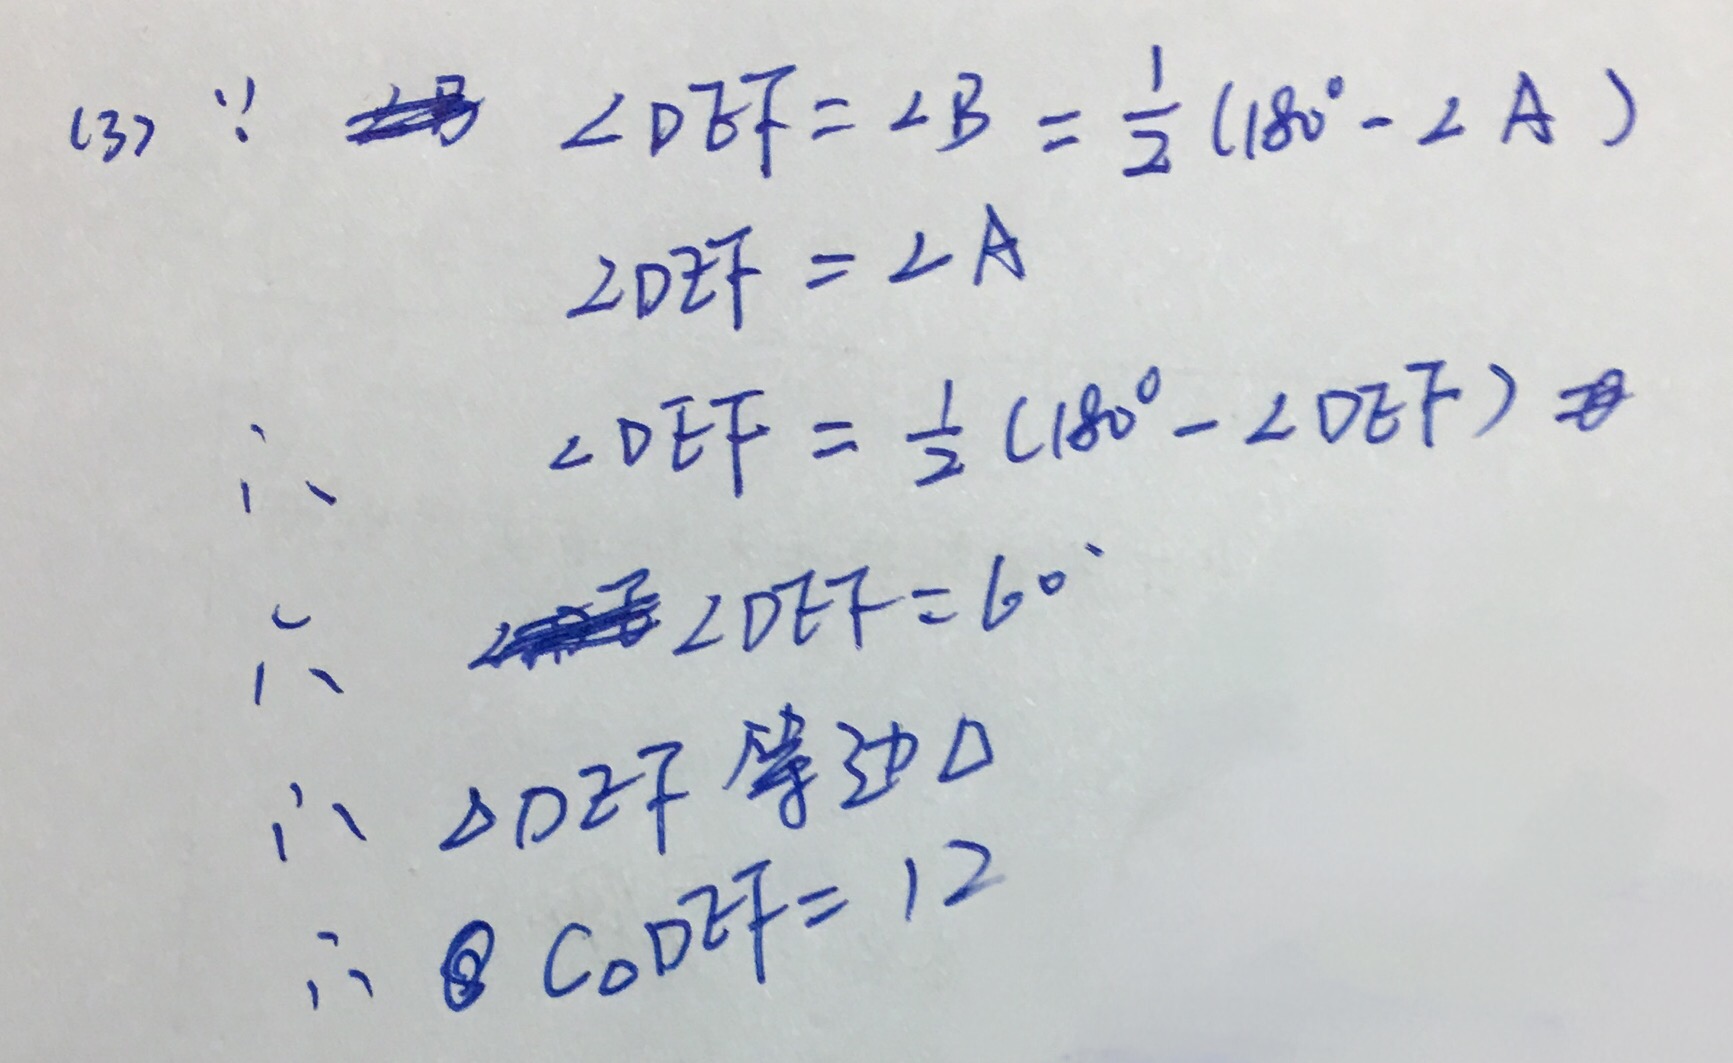 (3) ∵ ∠DEF=∠B=1/2(180°-∠A)
∠DEF=∠A
∴ ∠DEF=1/2(180°-∠DEF)
∴ ∠DEF=60°
∴ △DEF等边△
∴ C△DEF=12